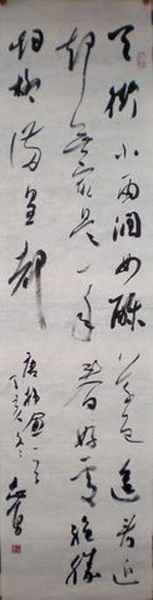 天街小雨润如酥草色遥看近
却无最是一年春好处绝胜
烟柳满皇都
唐韩愈